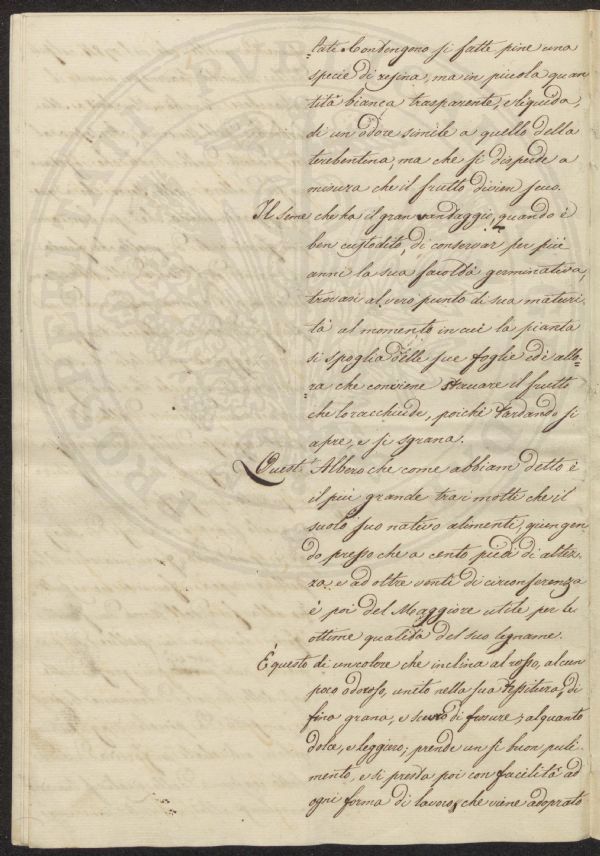 tate. Contengono si fatte pine una
specie di resina, ma in piccola quan
tità bianca trasparente, e liquida,
di un odore simile a quello della
terebentina, ma che si disperde a
misura che il frutto divien secco.
Il seme che ha il gran vantaggio, quando è
ben custodito, di conservar per più
anni la sua facoltà germinativa,
trovasi al vero punto di sua maturi
tà al momento in cui la pianta
si spoglia delle sue foglie ed è allo=
=ra che conviene staccare il frutto
che lo racchiude, poichè tardando si
apre, e si sgrana.
Quest' Albero che come abbiam detto è
il più grande tra i molti che il
suolo suo nativo alimenti, giungen
do presso che a cento piedi di altez
za e ad oltre venti di circonferenza
è poi del Maggiore utile per le
ottime qualità del suo legname.
È questo di un colore che inclina al rosso, alcun
poco odoroso, unito nella sua tessitura, di
fina grana, e scevro di fessure; alquanto
dolce, e leggiero; prende un sì buon puli
mento, e si presta poi con facilità ad
ogni forma di lavoro, che viene adoprato